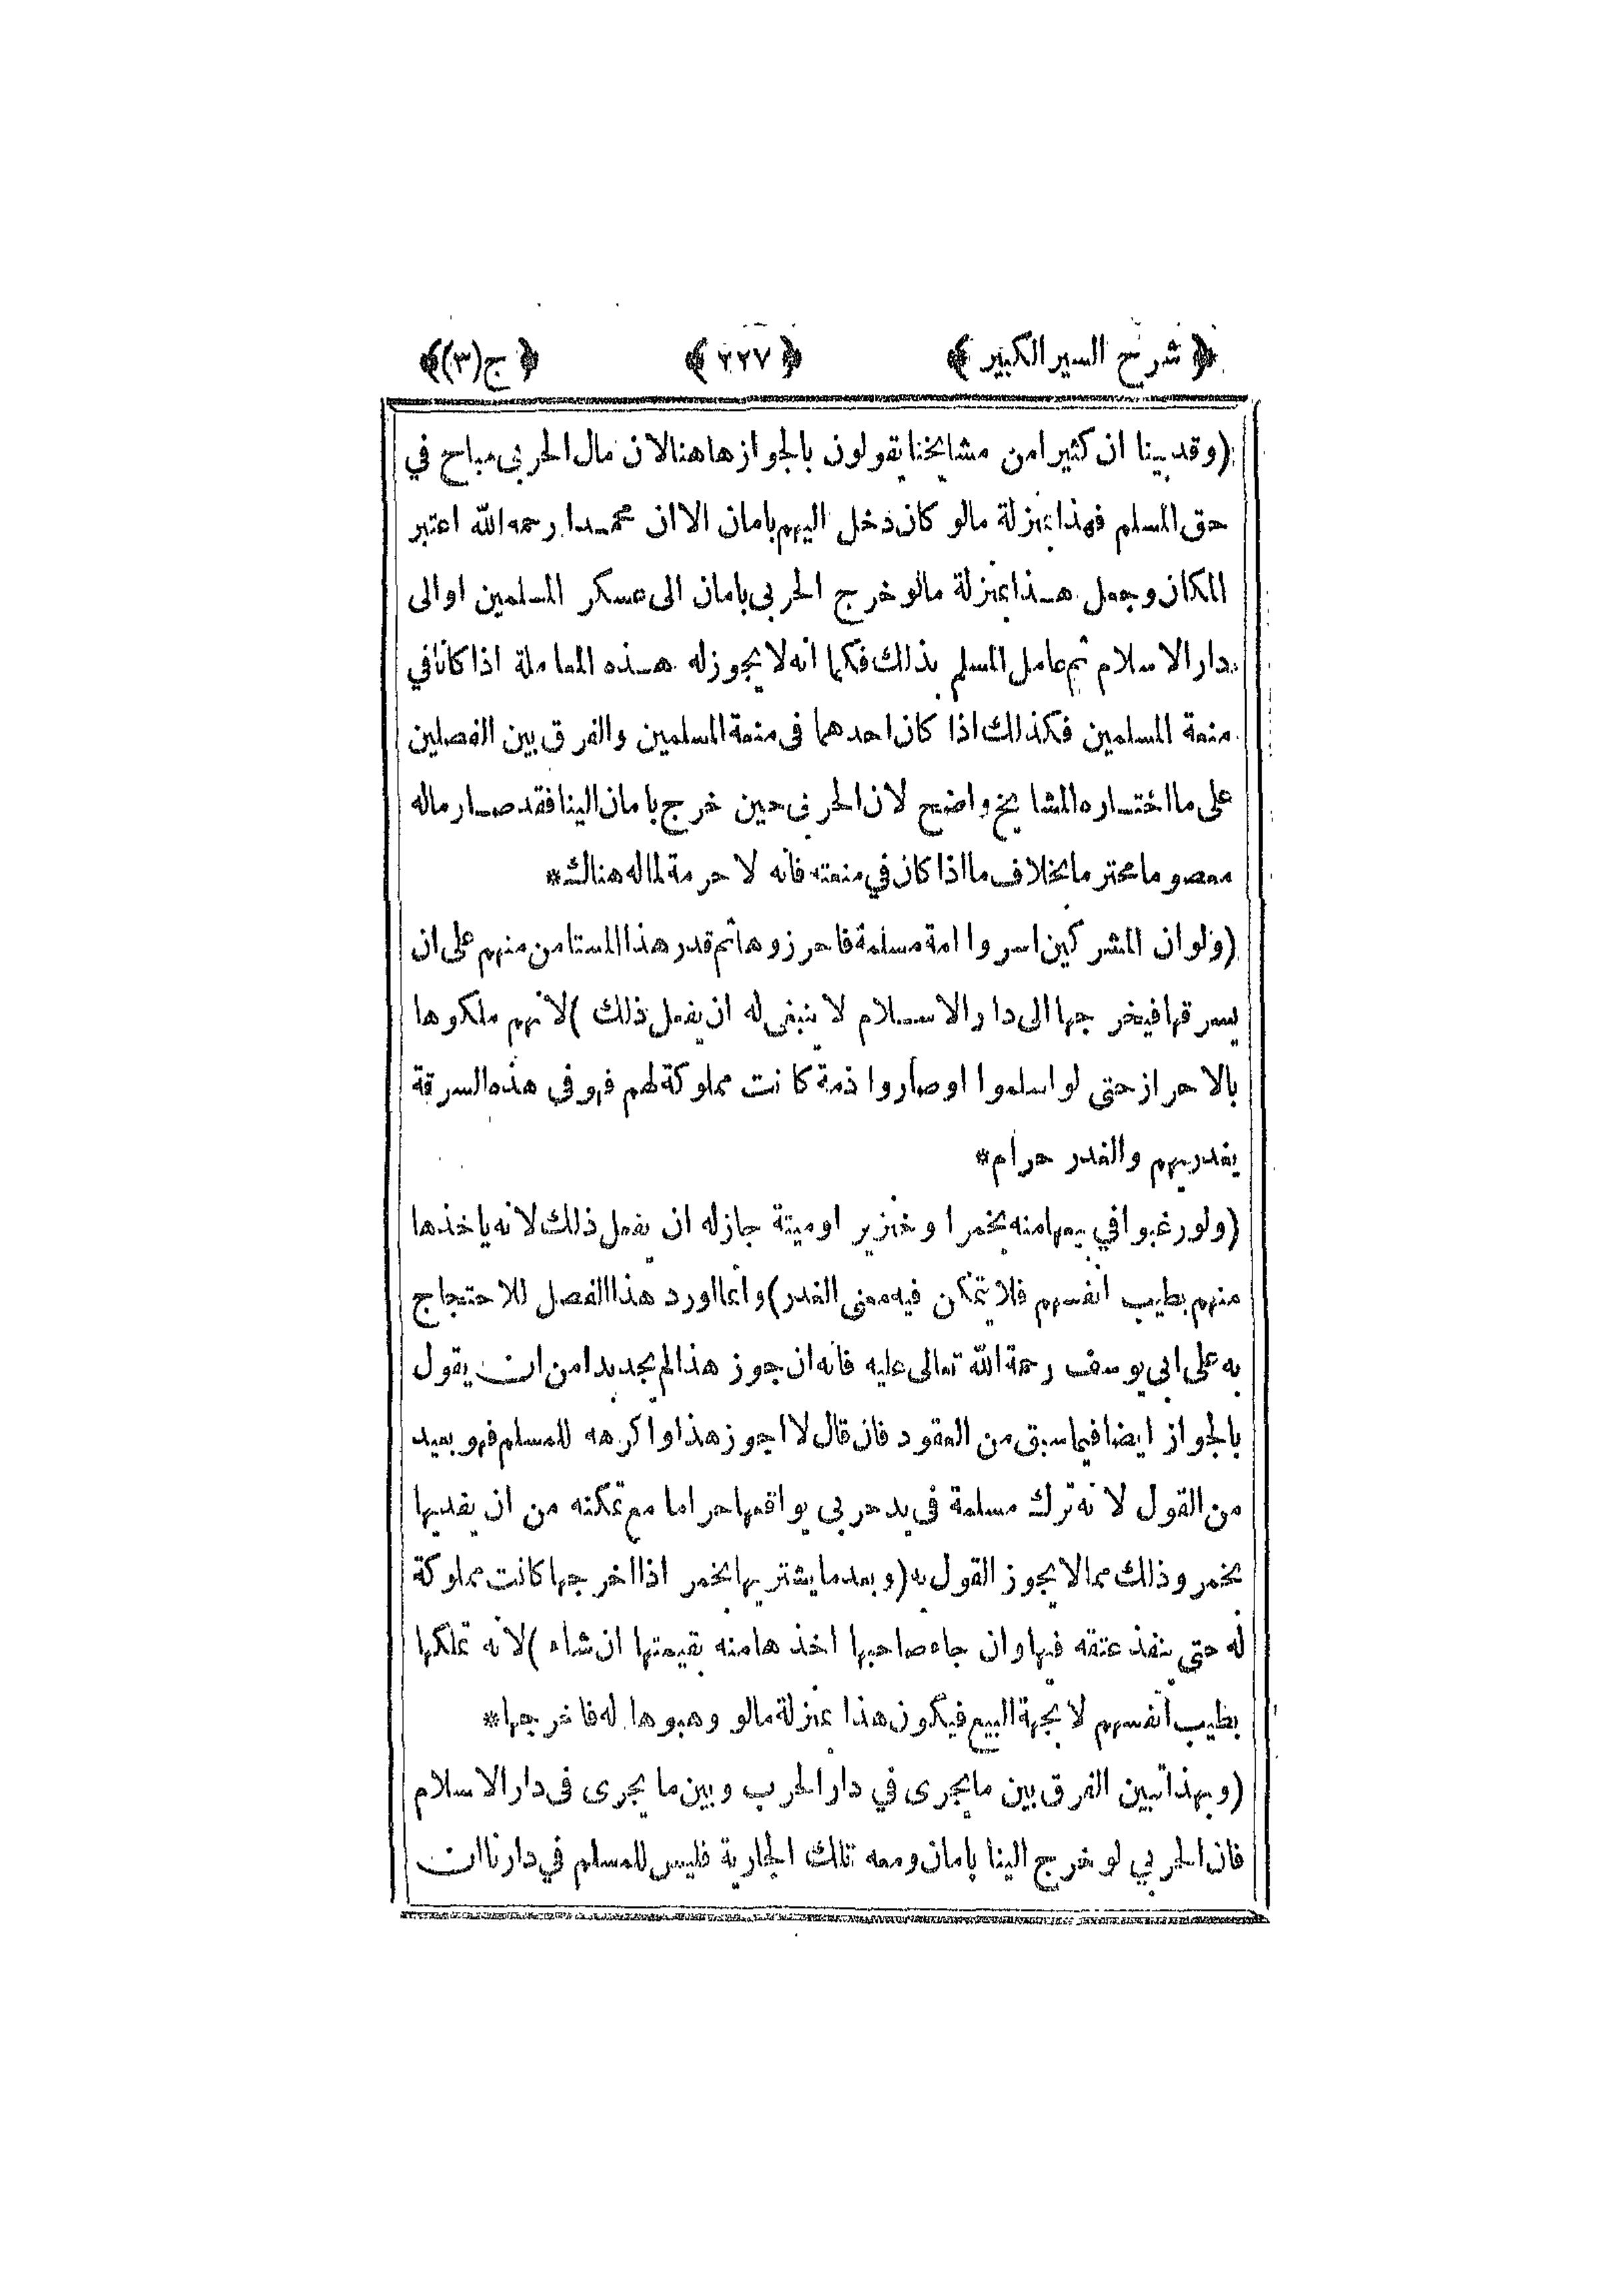 ﴿ شرح السير الكبير ﴾ ﴿ ٢٢٧ ﴾ ﴿ ج (٣) ﴾
(وقد بينا ان كثيرا من مشايخنا يقولون بالجواز هاهنا لان مال الحربي مباح في
حق المسلم فهذا بمنزلة مالو كان دخل اليهم بامان الا ان محمدا رحمه الله اعتبر
المكان وجعل هذا بمنزلة مالو خرج الحربي بامان الى عسكر المسلمين او الى
دار الاسلام ثم عامل المسلم بذلك فكما انه لا يجوز له هذه المعاملة اذا كانا في
منعة المسلمين فكذلك اذا كان احدهما في منعة المسلمين والفرق بين الفصلين
على ما اختاره المشايخ واضح لان الحربي حين خرج بامان الينا فقد صار ماله
معصوما محترما بخلاف ما اذا كان في منعته فانه لا حرمة لماله هناك*
(ولو ان المشركين اسروا امة مسلمة فاحرزوها ثم قدر هذا المستامن منهم على ان
يسرقها فيخرجها الى دار الاسلام لا ينبغي له ان يفعل ذلك) لانهم ملكوها
بالاحراز حتى لو اسلموا او صاروا ذمة كانت مملوكة لهم فهو في هذه السرقة
يغدر بهم والغدر حرام*
(ولو رغبوا في بيعها منه بخمر او خنزير او ميتة جاز له ان يفعل ذلك لانه ياخذها
منهم بطيب انفسهم فلا يتمكن فيه معنى الغدر) وانما اورد هذا الفصل للاحتجاج
به على ابي يوسف رحمة الله تعالى عليه فانه ان جوز هذا لم يجد بدا من ان يقول
بالجواز ايضا فيما سبق من العقود فان قال لا اجوز هذا او اكرهه للمسلم فهو بعيد
من القول لانه ترك مسلمة في يد حربي يواقعها حراما مع تمكنه من ان يفديها
بخمر وذلك مما لا يجوز القول به (وبعد ما يشتريها بخمر اذا اخرجها كانت مملوكة
له حتى ينفذ عتقه فيها وان جاء صاحبها اخذها منه بقيمتها ان شاء) لانه تملكها
بطيب انفسهم لا بجهة البيع فيكون هذا بمنزلة مالو وهبوها له فاخرجها*
(وبهذا تبين الفرق بين ما يجرى في دار الحرب وبين ما يجرى في دار الاسلام
فان الحربي لو خرج الينا بامان ومعه تلك الجارية فليس للمسلم في دارنا ان